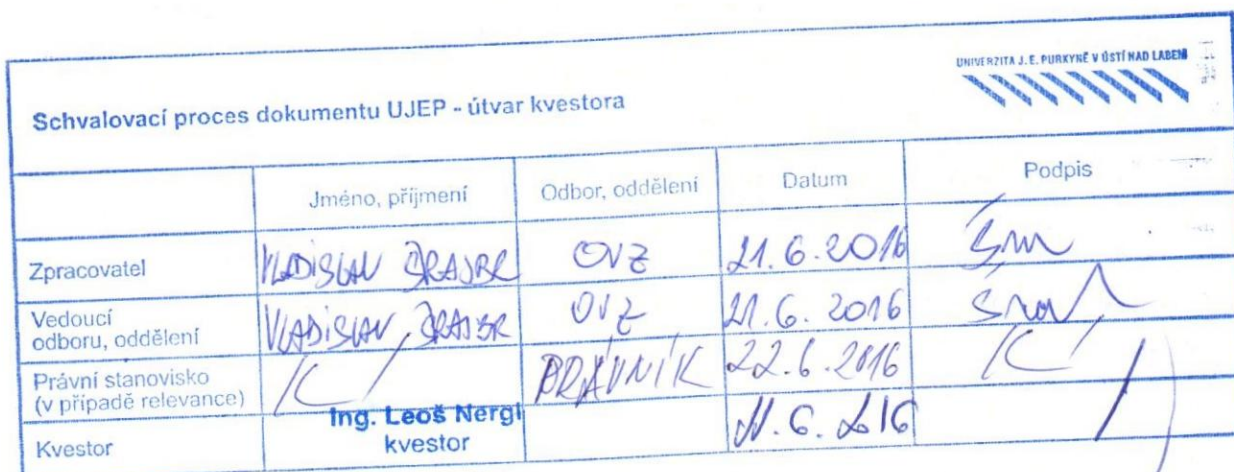 UNIVERZITA J. E. PURKYNĚ V ÚSTÍ NAD LABEM
Schvalovací proces dokumentu UJEP - útvar kvestora
Jméno, příjmení Odbor, oddělení Datum Podpis
Zpracovatel VLADISLAV ŠRAJBR OVZ 21. 6. 2016
Vedoucí
odboru, oddělení VLADISLAV ŠRAJBR OVZ 21. 6. 2016
Právní stanovisko
(v případě relevance) PRÁVNÍK 22. 6. 2016
Ing. Leoš Nergl
Kvestor kvestor